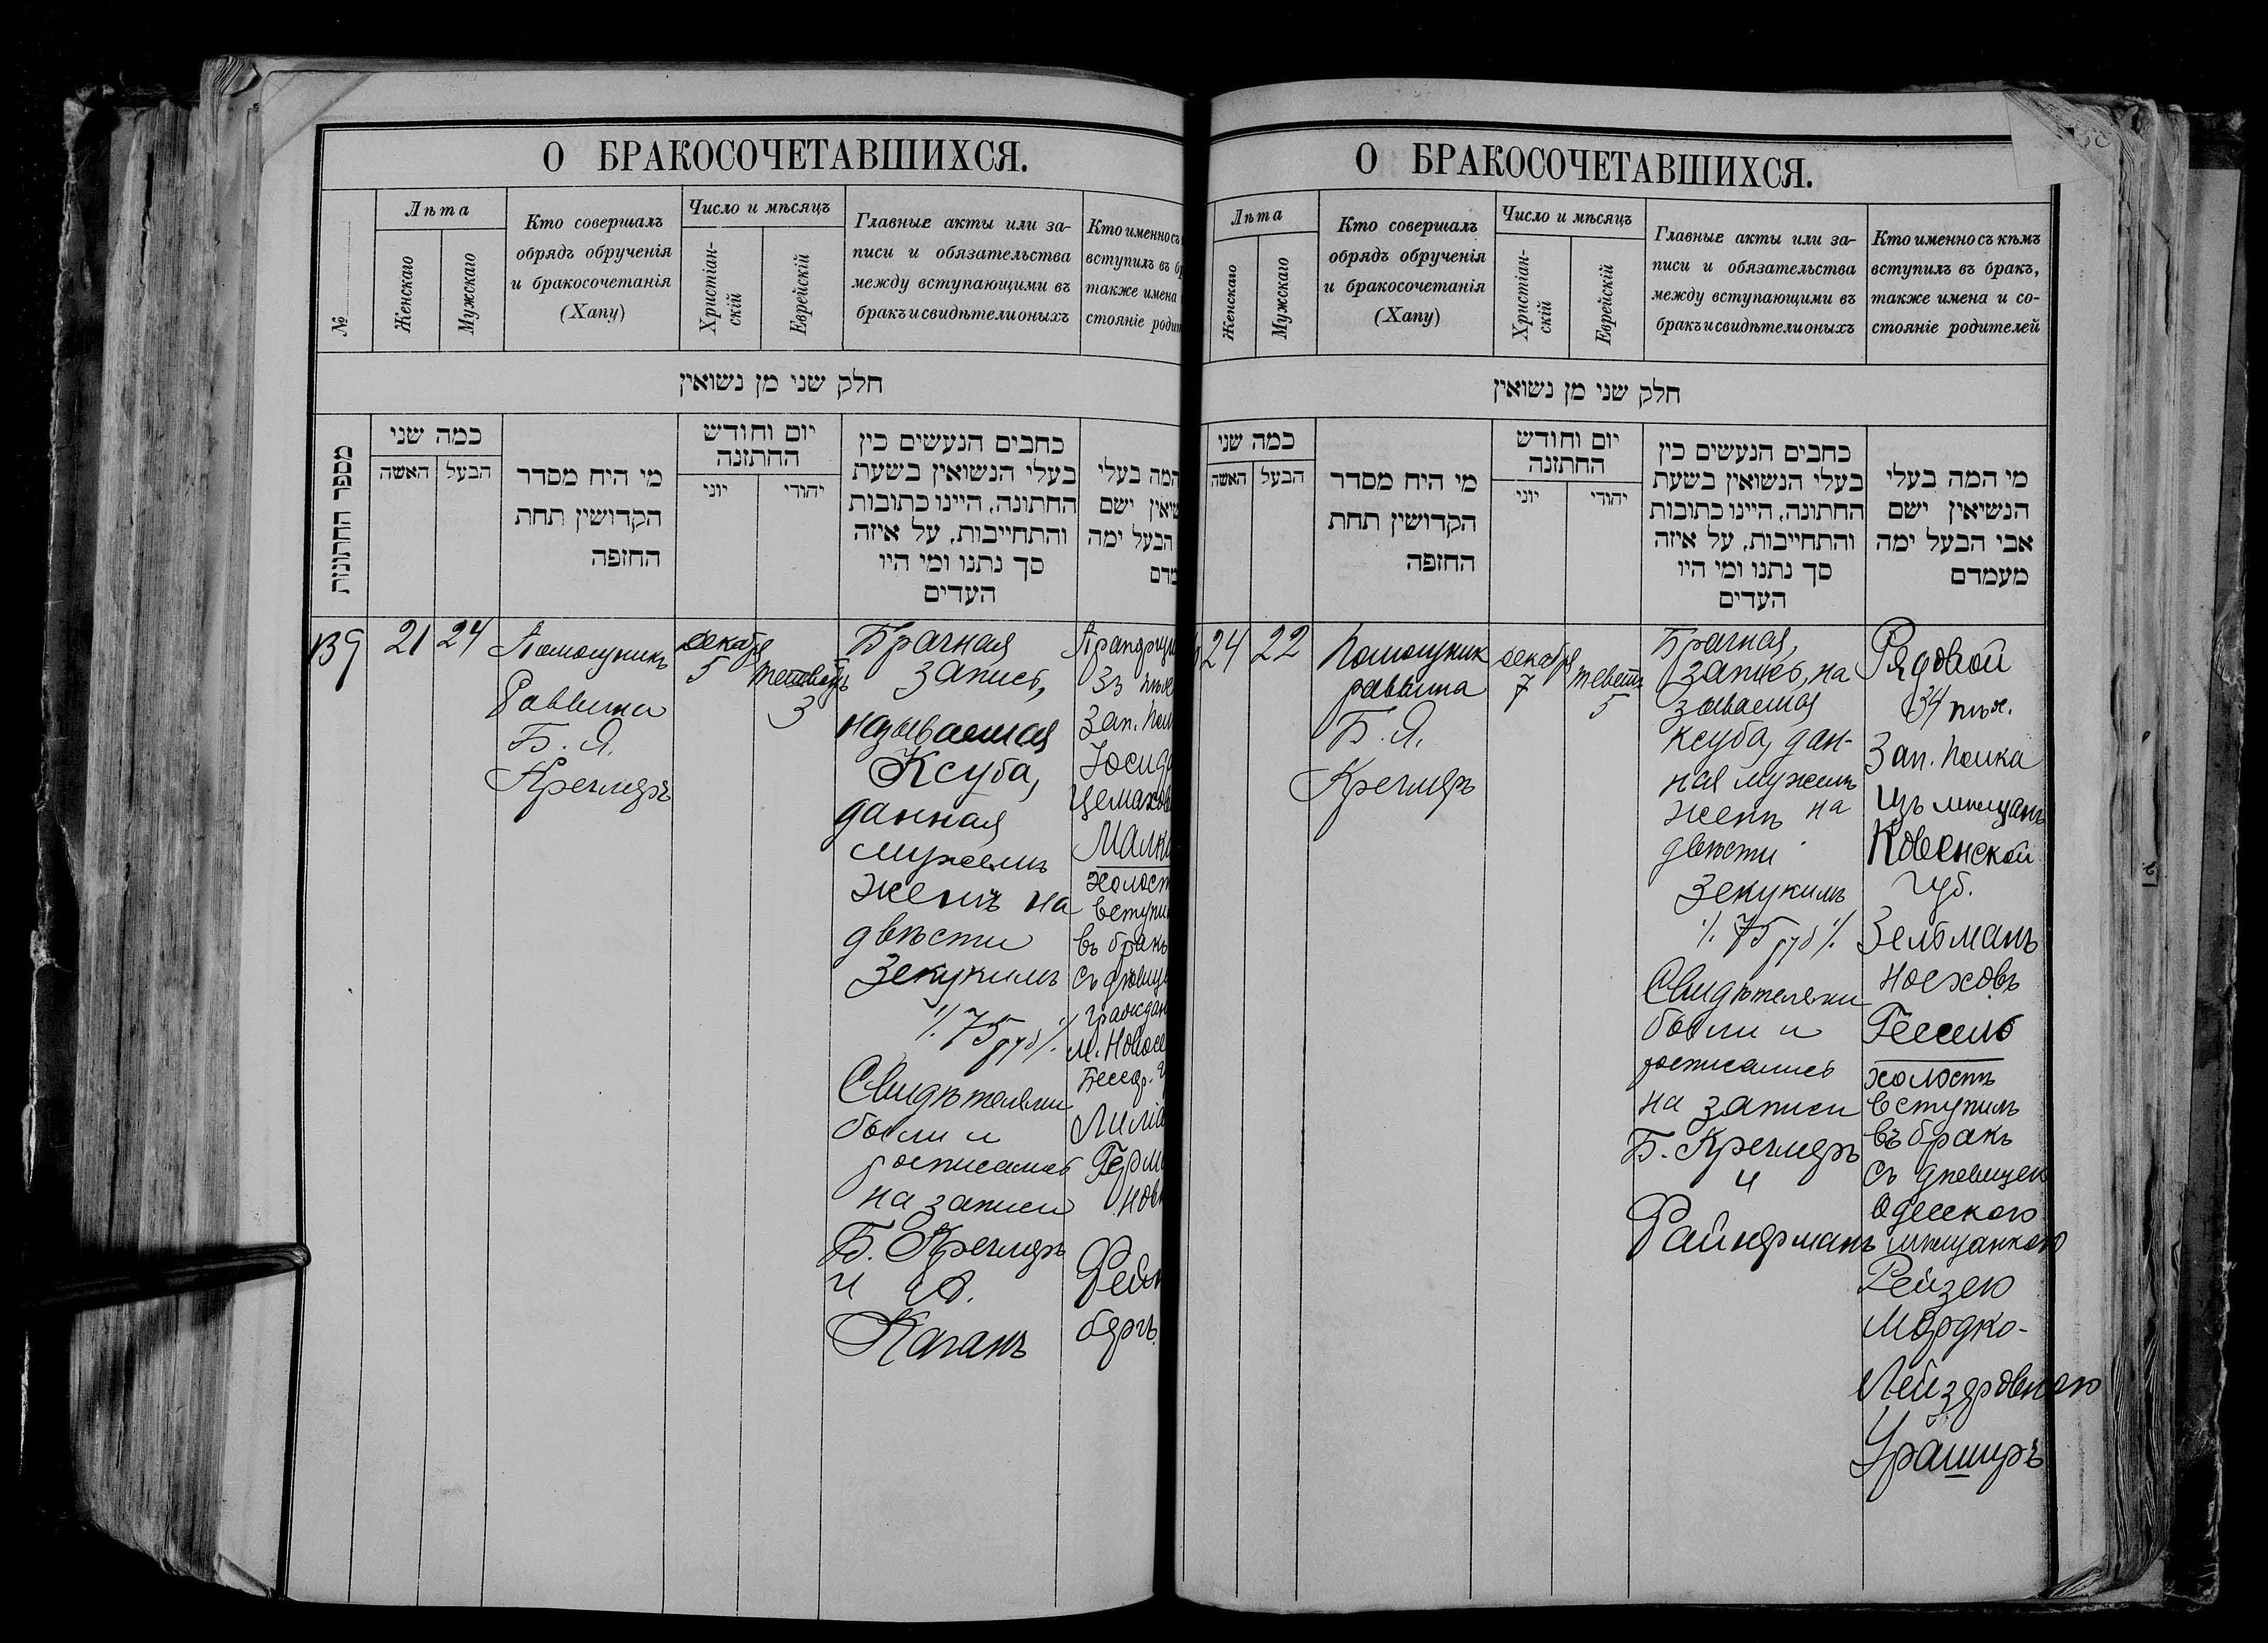 О БРАКОСОЧЕТАВШИХСЯ.
№
Лѣта
Женскаго
Мужскаго
Кто совершалъ
обрядъ обрученія
и бракосочетанія
(Хапу)
Число и мѣсяцъ
Христіан-
скій
Еврейскій
Главные акты или за-
писи и обязательства
между вступающими въ
бракъ и свидѣтели оныхъ
Кто именно съ
вступилъ въ
также имена
стояніе
חלק שני מן נשואין
מספר החתונות
כמה שני
האשה
הבעל
מי היח מסדר
הקדושין תחת
החופה
יום וחודש
החתונה
יוני
יהודי
כתבים הנעשים בין
בעלי הנשואין בשעת
החתונה, היינו כתובות
והתחייבות, על איזה
סך נתנו ומי היו
העדים
המה בעלי
ישם
הבעל ימה
139
21
24
Помощникъ
Раввина
Б. Я.
Кречмеръ
Декабря
5
3
Брачная
запись,
называемая
Ксуба,
данная
мужемъ
женѣ на
двѣсти
Зекукимъ
./. 75 руб ./.
Свидѣтелями
были и
росписались
на записи
Б. Кречмеръ
и
Каганъ
33
Зап.
въ бракъ
бергъ.
О БРАКОСОЧЕТАВШИХСЯ.
Лѣта
Женскаго
Мужскаго
Кто совершалъ
обрядъ обрученія
и бракосочетанія
(Хапу)
Число и мѣсяцъ
Христіан-
скій
Еврейскій
Главные акты или за-
писи и обязательства
между вступающими въ
бракъ и свидѣтели оныхъ
Кто именно съ кѣмъ
вступилъ въ бракъ,
также имена и со-
стояніе родителей
חלק שני מן נשואין
כמה שני
האשה
הבעל
מי היח מסדר
הקדושין תחת
החופה
יום וחודש
החתונה
יוני
יהודי
כתבים הנעשים בין
בעלי הנשואין בשעת
החתונה, היינו כתובות
והתחייבות, על איזה
סך נתנו ומי היו
העדים
מי המה בעלי
הנשיאין ישם
אבי הבעל ימה
מעמדם
24
22
Помощник
раввина
Б. Я.
Кречмеръ
декабря
7
Теветъ
5
Брачная,
запись, на
зываемая
ксуба, дан-
ная мужемъ
женѣ на
двѣсти
Зекукимъ
./. 75 руб ./.
Свидѣтелями
были и
росписались
на записи
Б. Кречмеръ
и
Файнерманъ
Рядовой
34 пѣх.
Зап. полка
изъ мѣщанъ
Ковенской
губ.
Зельманъ
Носховъ
Гессель
холостъ
вступилъ
въ бракъ
съ дѣвицею
Одесскою
мѣщанкою
Рейзею
Мордко-
Лейзеровною